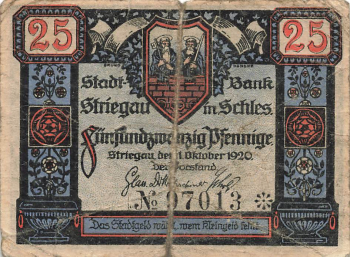 25 25
Stadt- Bank
Striegau in Schles.
Fünfundzwanzig Pfennige
Striegau, den 1. Oktober 1920.
Der Vorstand
No 97013 *
Das Stadtgeld wählt, wem Kleingeld fehlt.